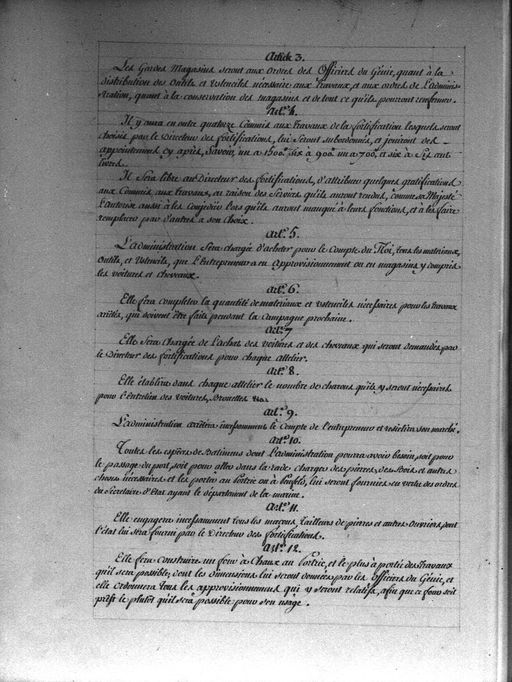 Article 3.
Les Gardes Magasins seront aux ordres des Officiers du Génie, quant à la
distribution des Outils et Ustenciles nécessaires aux travaux, et aux ordres de l'adminis-
tration, quant à la conservation des magasins et de tout ce qu'ils pourront renfermer.
Art.e 4.
Il y aura en outre quatorze Commis aux travaux de la fortification lesquels seront
choisis par le Directeur des fortifications, lui seront subordonnés, et jouiront des
appointemens cy après, Savoir, un a 1500.tt six à 900.tt un a 700, et six à Six cent
livres.
Il Sera libre au Directeur des fortifications, d'attribuer quelques gratifications
aux Commis aux travaux, en raison des Services qu'ils auront rendus, comme sa Majesté
l'autorise aussi à les Congédier lors qu'ils auront manqué à leurs fonctions, et à les faire
remplacer par d'autres à son Choix.
Art.e 5.
L'administration Sera chargée d'acheter pour le Compte du Roi, tous les matériaux,
Outils, et Ustencils, que l'Entrepreneur a en approvisionnement ou en magasins, y compris
les voitures et chevaux.
Art.e 6.
Elle fera completter la quantité de matériaux et ustenciles nécessaires pour les travaux
arrêtés, qui doivent être faits pendant la Campagne prochaine.
Art.e 7
Elle Sera Chargée de l'achat des voitures et des chevaux qui seront demandés par
le Directeur des fortifications pour chaque attelier.
Art.e 8.
Elle établira dans chaque attelier le nombre de charons qu'ils y seront nécessaires
pour l'entretien des voitures, Brouettes &a.
Art.e 9.
L'administration arrêtera incessamment le Compte de l'entrepreneur et résiliera son marché.
Art.e 10.
Toutes les espèces de Batimens dont l'administration pourra avoir besoin, soit pour
le passage du port, soit pour aller dans la rade charger des pierres, des Bois et autres
choses nécessaires et les porter au lui seront fournies en vertu des ordres
du Secretaire d'Etat ayant le département de la marine.
Art.e 11.
Elle engagera incessamment tous les maçons, Tailleurs de pierres et autres Ouvriers, dont
l'état lui sera fourni par le Directeur des fortifications.
Art.e 12.
Elle fera Construire un four à Chaux au et le plus à portée des travaux
qu'il sera possible; dont les Dimensions lui seront données par les Officiers du Génie, et
elle Ordonnera tous les approvisionnemens qui y seront relatifs, afin que ce four soit
prêt le plutôt qu'il sera possible pour son usage.